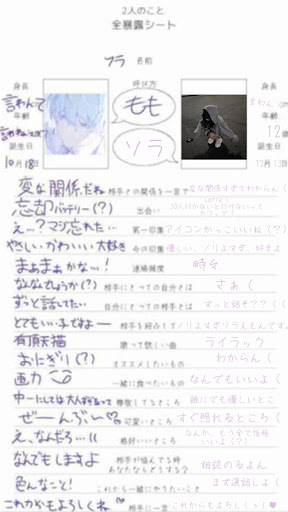 2人のこと
全暴露シート
ソラ 名前
身長 呼び方 身長
言わんて もも
年齢 年齢
ソラ 12歳
誕生日 誕生日
10月18日 12月13日
変な関係だね 相手との関係を一言で な関係すぎてわからん(
忘却バッテリー(?) 出会い
え…?マジ忘れた… 第一印象 アイコンかっこいいね(?)
やさしい、かわいい大好き 今の印象 優しい、ノリよすぎ、好きよ
まぁまぁかな…! 連絡頻度 時々
なんなんでしょうか(?) 相手にとっての自分とは さぁ(
ずっと話してたい… 自分にとっての相手とは ずっと話そ??((
とてもいい子ですよー 相手を紹介して ノリよすぎソラえもんです。
有頂天猫 歌って欲しい曲 ライラック
おにぎり(?) オススメしたいもの わからん(
画力 一緒に食べたいもの なんでもいいよ(
中一にしては大人すぎるって 尊敬してるところ 誰にでも優しいとこ
ぜーんぶ〜♡ 可愛いところ すぐ照れるところ(
え、なんだろ…(( 格好いいところ なんか、もう全て性格いいよ(?)
なんでもしますよ 相手が悩んでる時あなたならどうする? 相談のるよん
色んなこと! これから一緒にやりたいこと まず通話しよ(
これからもよろしくね 相手に一言 これからもよろしく(ぅ)♥